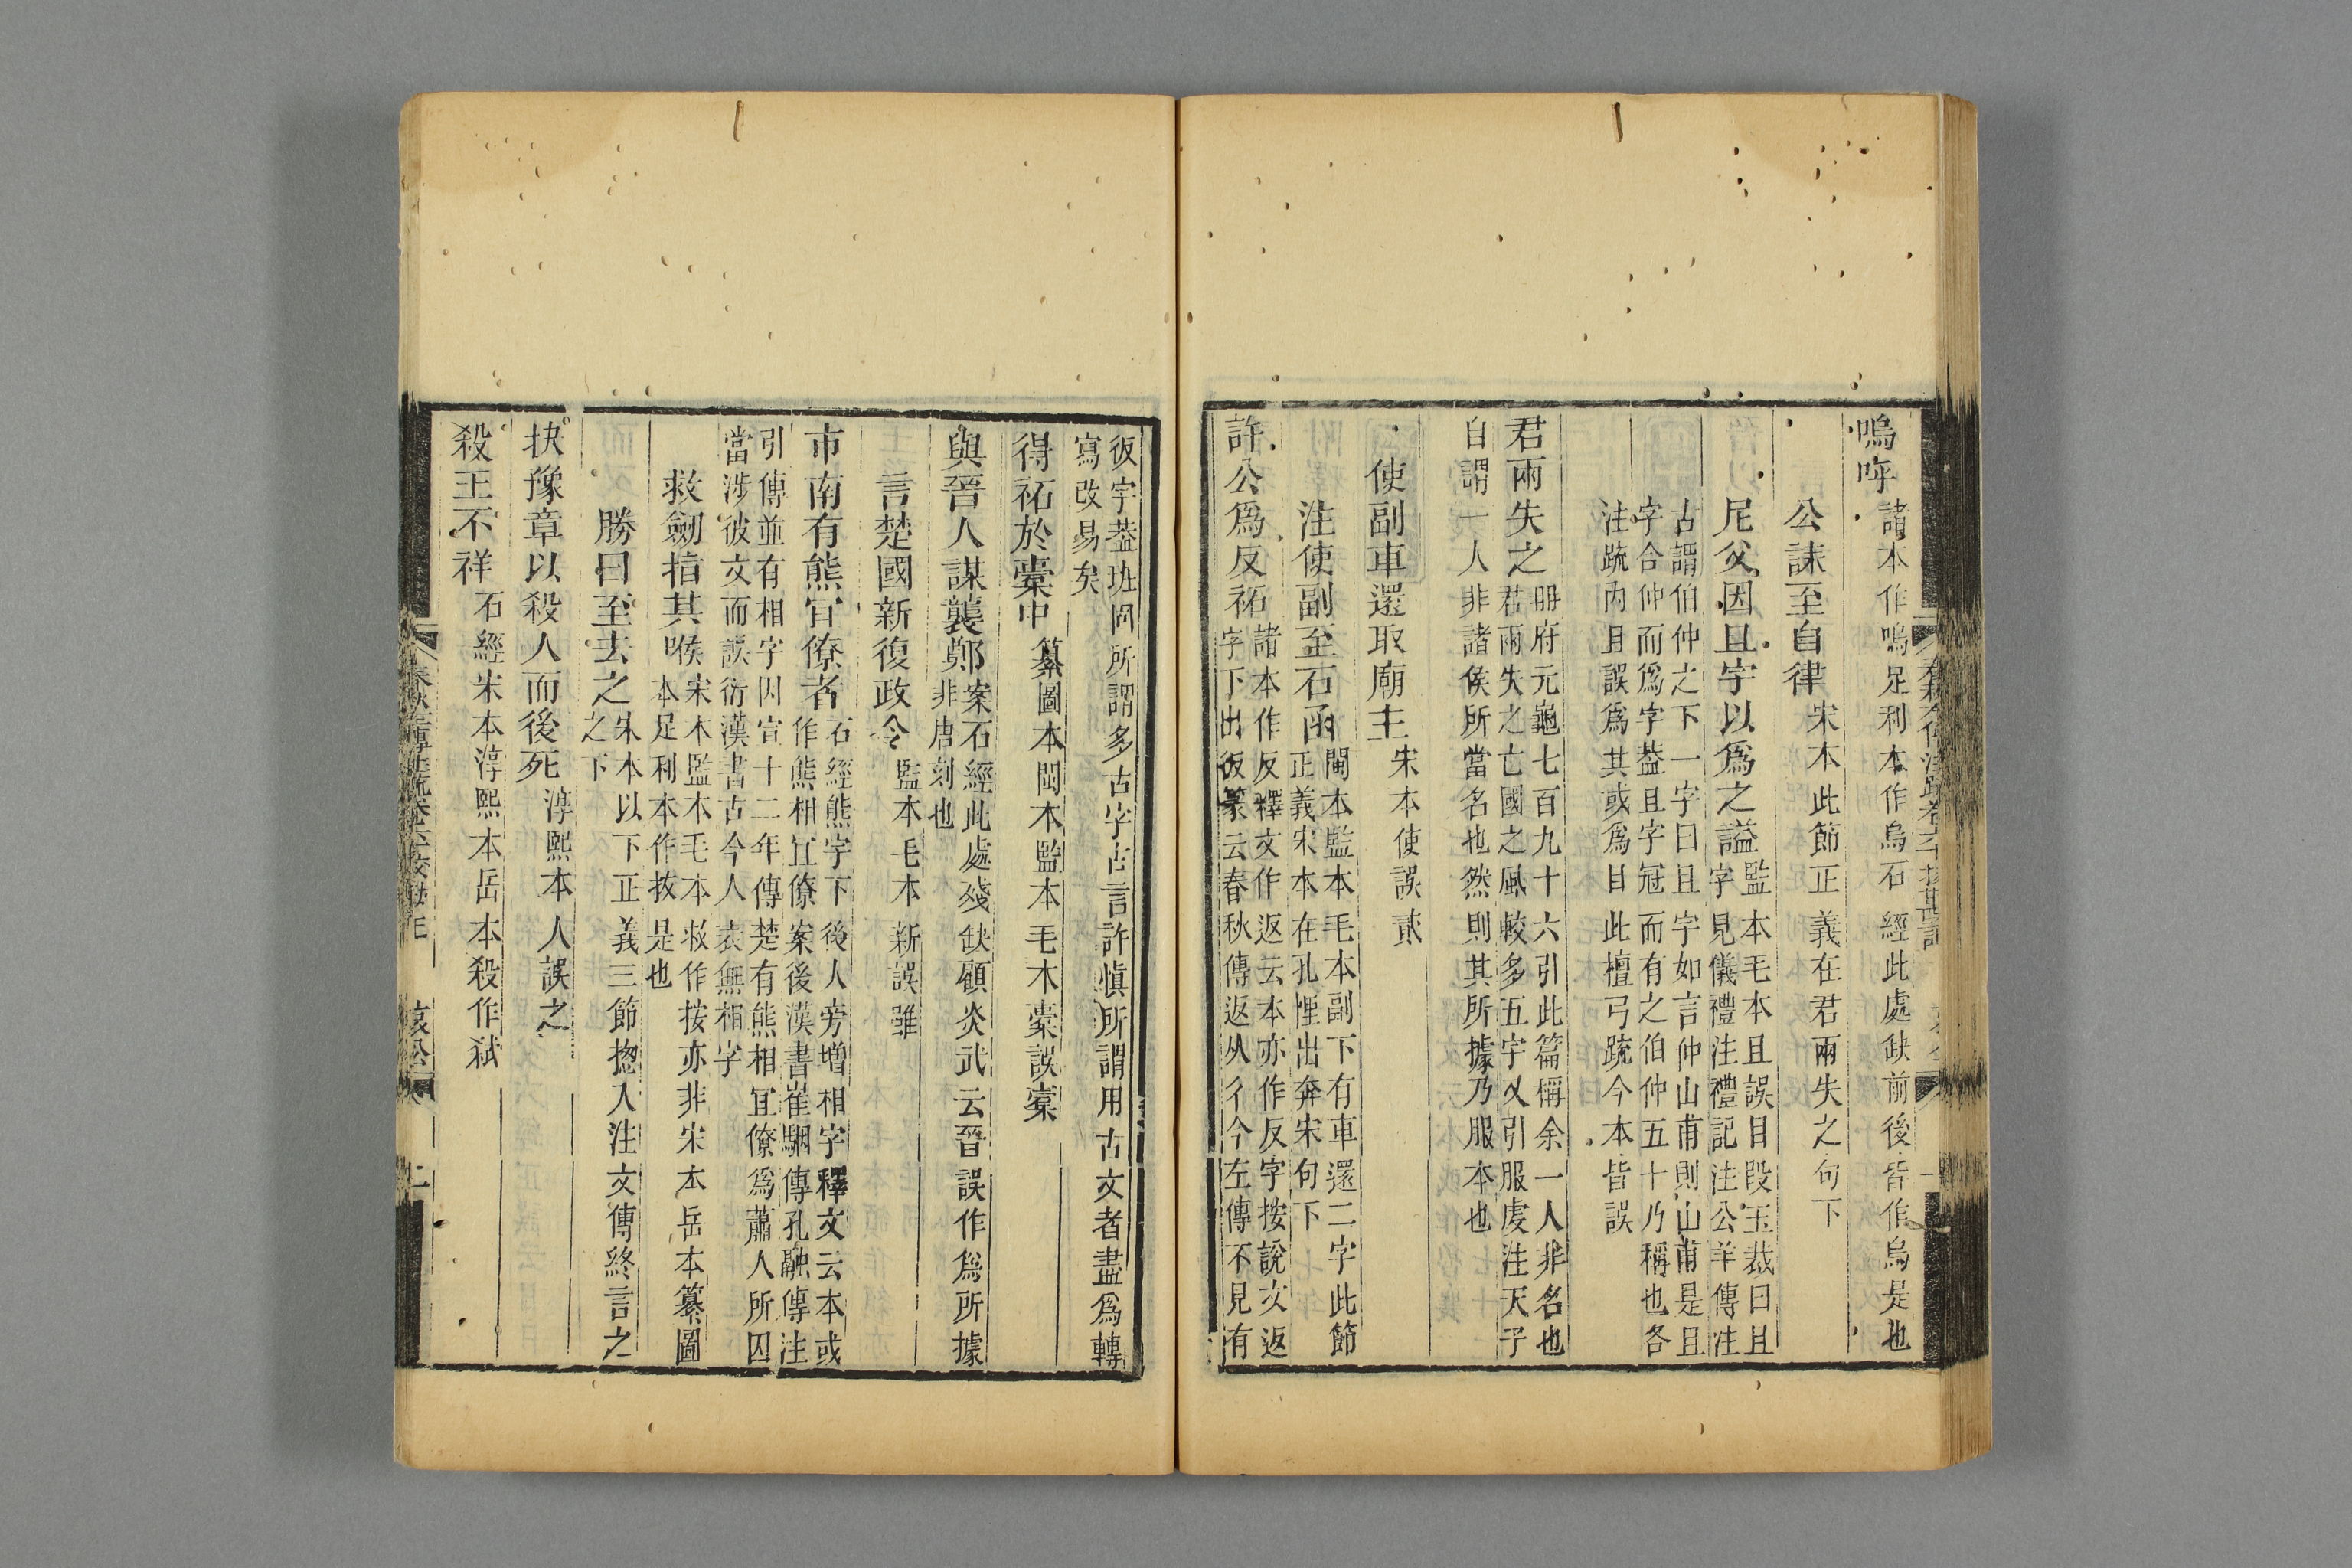 嗚呼諸本作嗚足利本作烏石經此處缺前後皆作烏是也
公誄至自律宋本此節正義在君兩失之句下
尼父因且字以爲之謚監本毛本且誤目段玉裁曰且
字見儀禮注禮記注公羊傳注
古謂伯仲之下一字曰且字如言仲山甫則山甫是且
字合仲而爲字蓋且字冠而有之伯仲五十乃稱也各
注疏內且誤爲其或爲目此檀弓疏今本皆誤
君兩失之冊府元龜七百九十六引此篇稱余一人非名也
君兩失之亡國之風較多五字又引服虔注天子
自謂一人非諸侯所當名也然則其所據乃服本也
使副車還取廟主宋本使誤貳
注使副至石函閩本監本毛本副下有車還二字此節
正義宋本在孔悝出奔宋句下
許公爲反祏諸本作反釋文作返云本亦作反字按說文返
字下出彶篆云春秋傳返从彳今左傳不見有
彶字葢班固所謂多古字古言許愼所謂用古文者盡爲轉
寫改易矣
得祏於橐中纂圖本閩本監本毛本橐誤槖
與晉人謀襲鄭案石經此處殘缺顧炎武云晉誤作爲所據
非唐刻也
言楚國新復政令監本毛本新誤雖
市南有熊宜僚者石經熊字下後人旁增相字釋文云本或
作熊相宜僚案後漢書崔駰傳孔融傳注
引傳並有相字因宣十二年傳楚有熊相宜僚爲蕭人所囚
當涉彼文而誤衍漢書古今人表無相字
救劒指其喉宋本監本毛本救作按亦非宋本岳本纂圖
本足利本作拔是也
勝曰至去之宋本以下正義三節揔入注文傳終言之
之下
抉豫章以殺人而後死淳熙本人誤之
殺王不祥石經宋本淳熙本岳本殺作弑